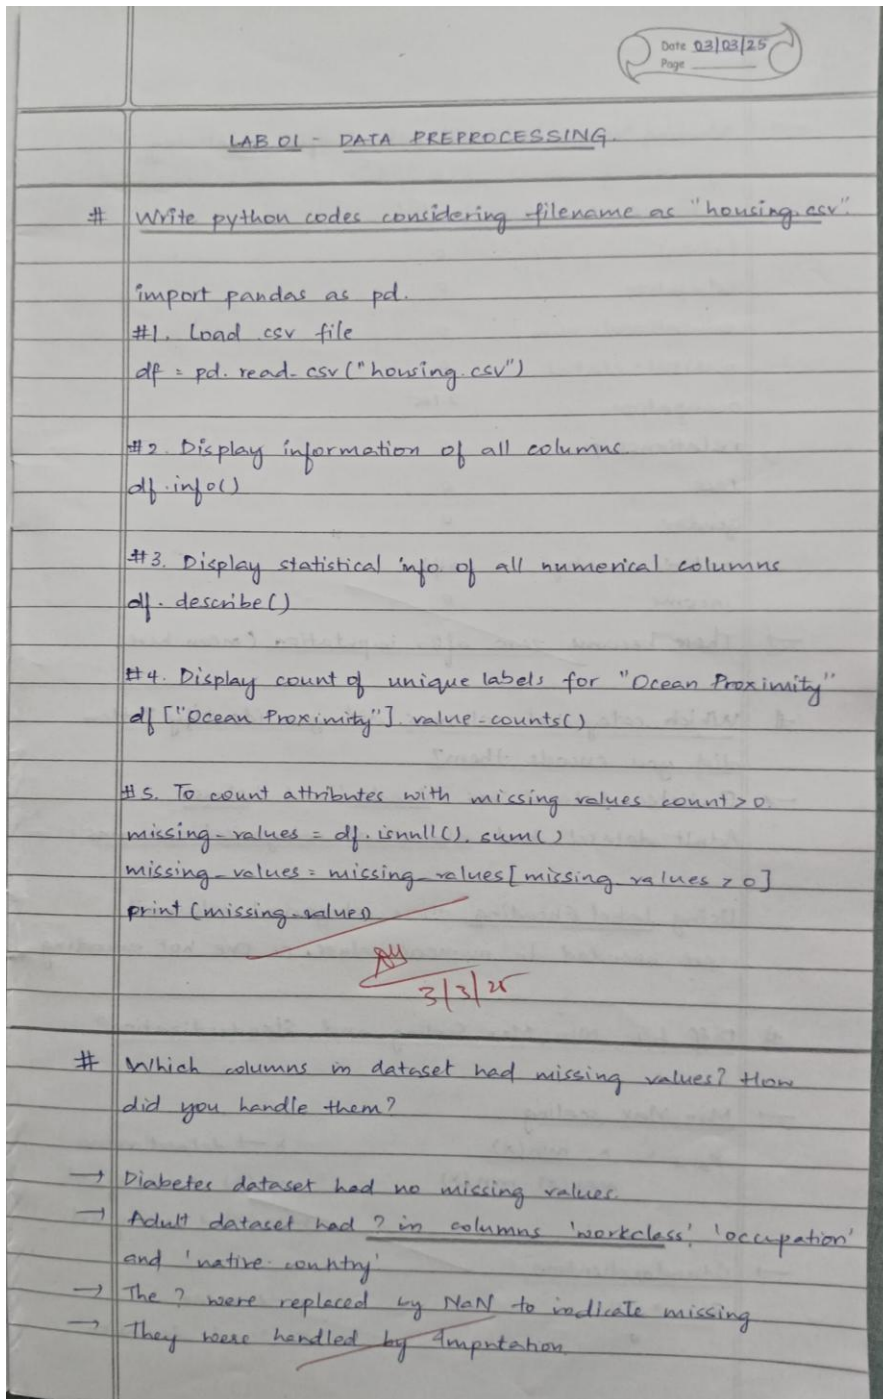 Date 03/03/25
Page
LAB 01 - DATA PREPROCESSING.
# Write python codes considering filename as "housing.csv".
import pandas as pd.
#1. Load csv file
df = pd. read_csv ("housing.csv")
#2. Display information of all columns
df.info()
#3. Display statistical info of all numerical columns
df. describe()
#4. Display count of unique labels for "Ocean Proximity"
df ["Ocean Proximity"]. value_counts()
#5. To count attributes with missing values count > 0
missing_values = df. isnull(). sum()
missing_values = missing_values [missing_values > 0]
print (missing_values)
3/3/25
# Which columns in dataset had missing values? How
did you handle them?
→ Diabetes dataset had no missing values.
→ Adult dataset had ? in columns 'workclass', 'occupation'
and 'native-country'
→ The ? were replaced by NaN to indicate missing
→ They were handled by Imputation